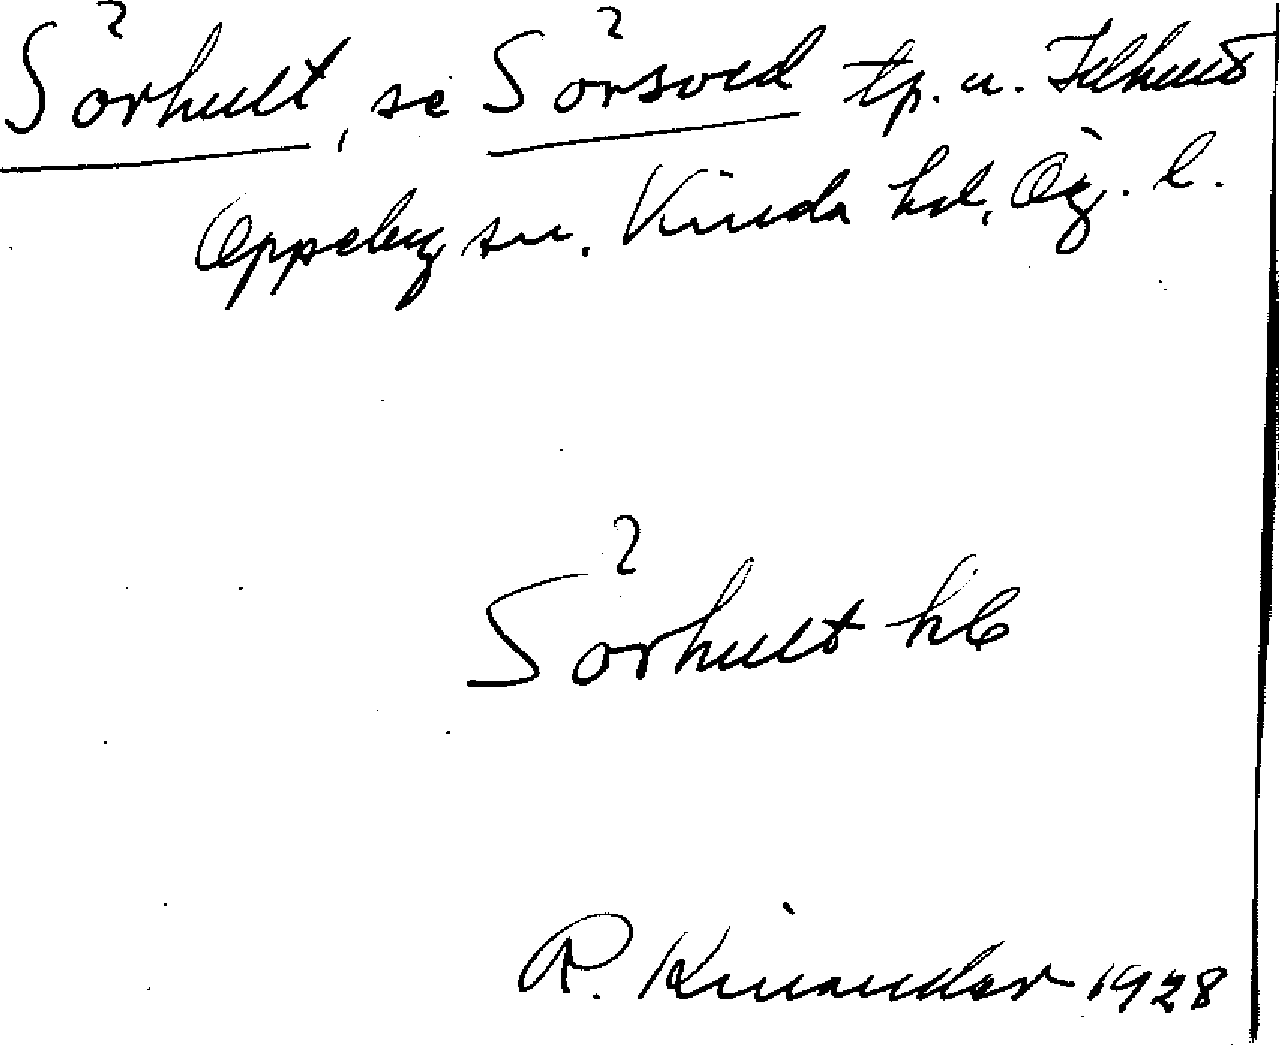 Sörhult, se Sörsved tp. u. Idhult
Oppeby sn. Kinda hd, Ög. l.
Sörhult hb
R. Kinander 1928